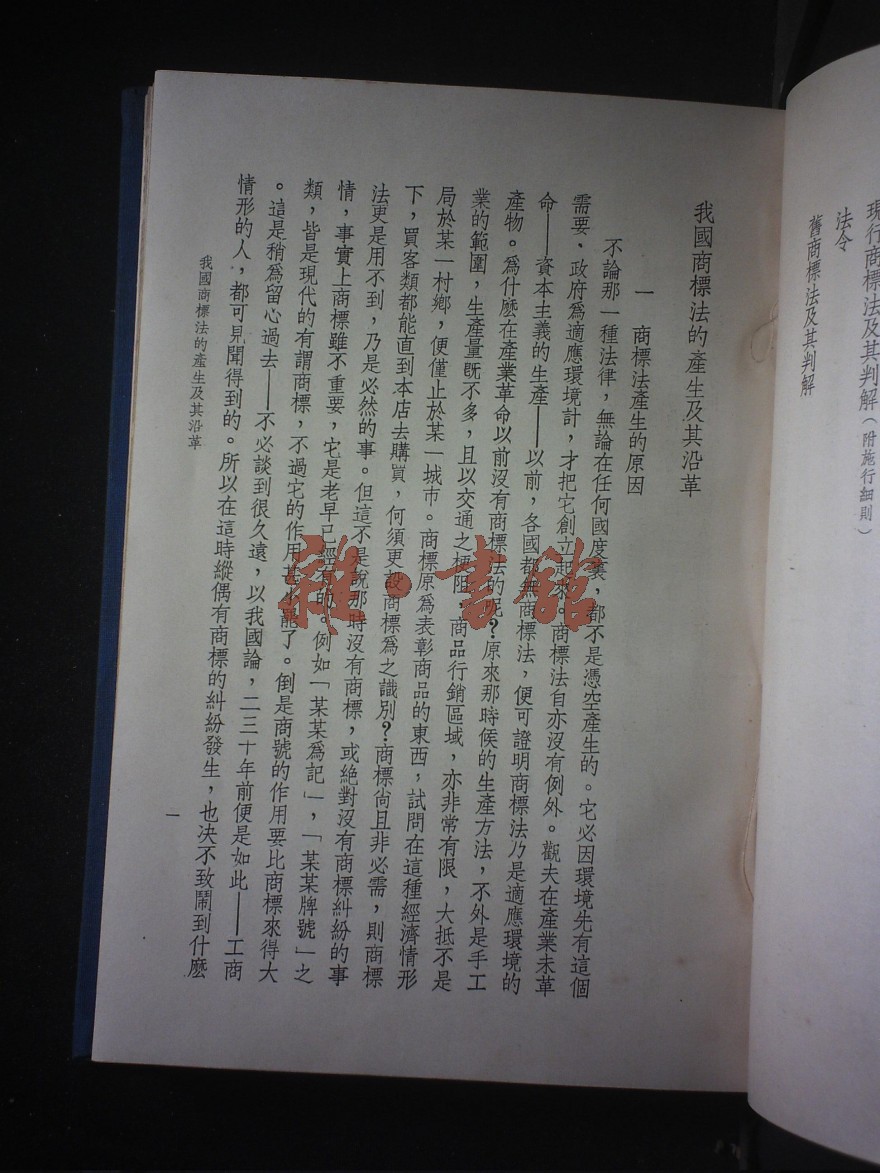 現行商標法及其判解(附施行細則)
法令
舊商標法及其判解
我國商標法的產生及其沿革
一　商標法產生的原因
不論那一種法律，無論在任何國度裏，都不是憑空產生的。它必因環境先有這個
需要，政府爲適應環境計，才把它創立起來。商標法自亦沒有例外。觀夫在產業未革
命——資本主義的生產——以前，各國都無商標法，便可證明商標法乃是適應環境的
產物。爲什麼在產業革命以前沒有商標法的呢？原來那時候的生產方法，不外是手工
業的範圍，生產量旣不多，且以交通之梗阻，商品行銷區域，亦非常有限，大抵不是
局於某一村鄉，便僅止於某一城市。商標原爲表彰商品的東西，試問在這種經濟情形
下，買客類都能直到本店去購買，何須更設商標爲之識別？商標尙且非必需，則商標
法更是用不到，乃是必然的事。但這不是說那時沒有商標，或絕對沒有商標糾紛的事
情，事實上商標雖不重要，它是老早已經有的。例如「某某爲記」，「某某牌號」之
類，皆是現代的有謂商標，不過它的作用甚小罷了。倒是商號的作用要比商標來得大
。這是稍爲留心過去——不必談到很久遠，以我國論，二三十年前便是如此——工商
情形的人，都可見聞得到的。所以在這時縱偶有商標的糾紛發生，也決不致鬧到什麼
我國商標法的產生及其沿革
一
雜·書館